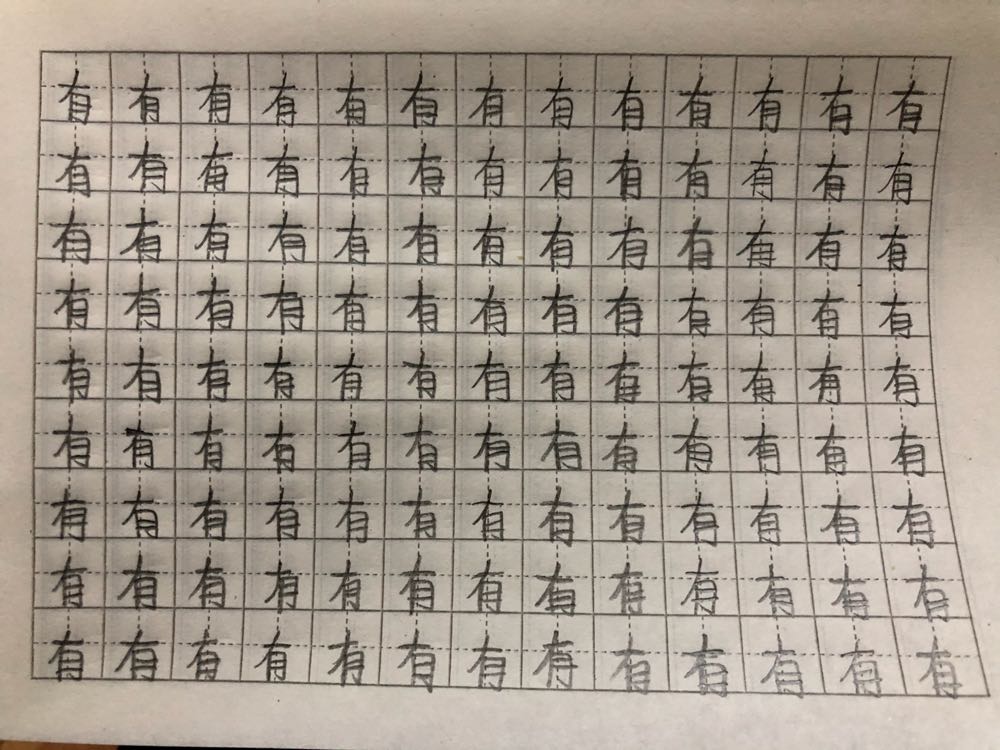 有有有有有有有有有有有有有
有有有有有有有有有有有有有
有有有有有有有有有有有有有
有有有有有有有有有有有有有
有有有有有有有有有有有有有
有有有有有有有有有有有有有
有有有有有有有有有有有有有
有有有有有有有有有有有有有
有有有有有有有有有有有有有